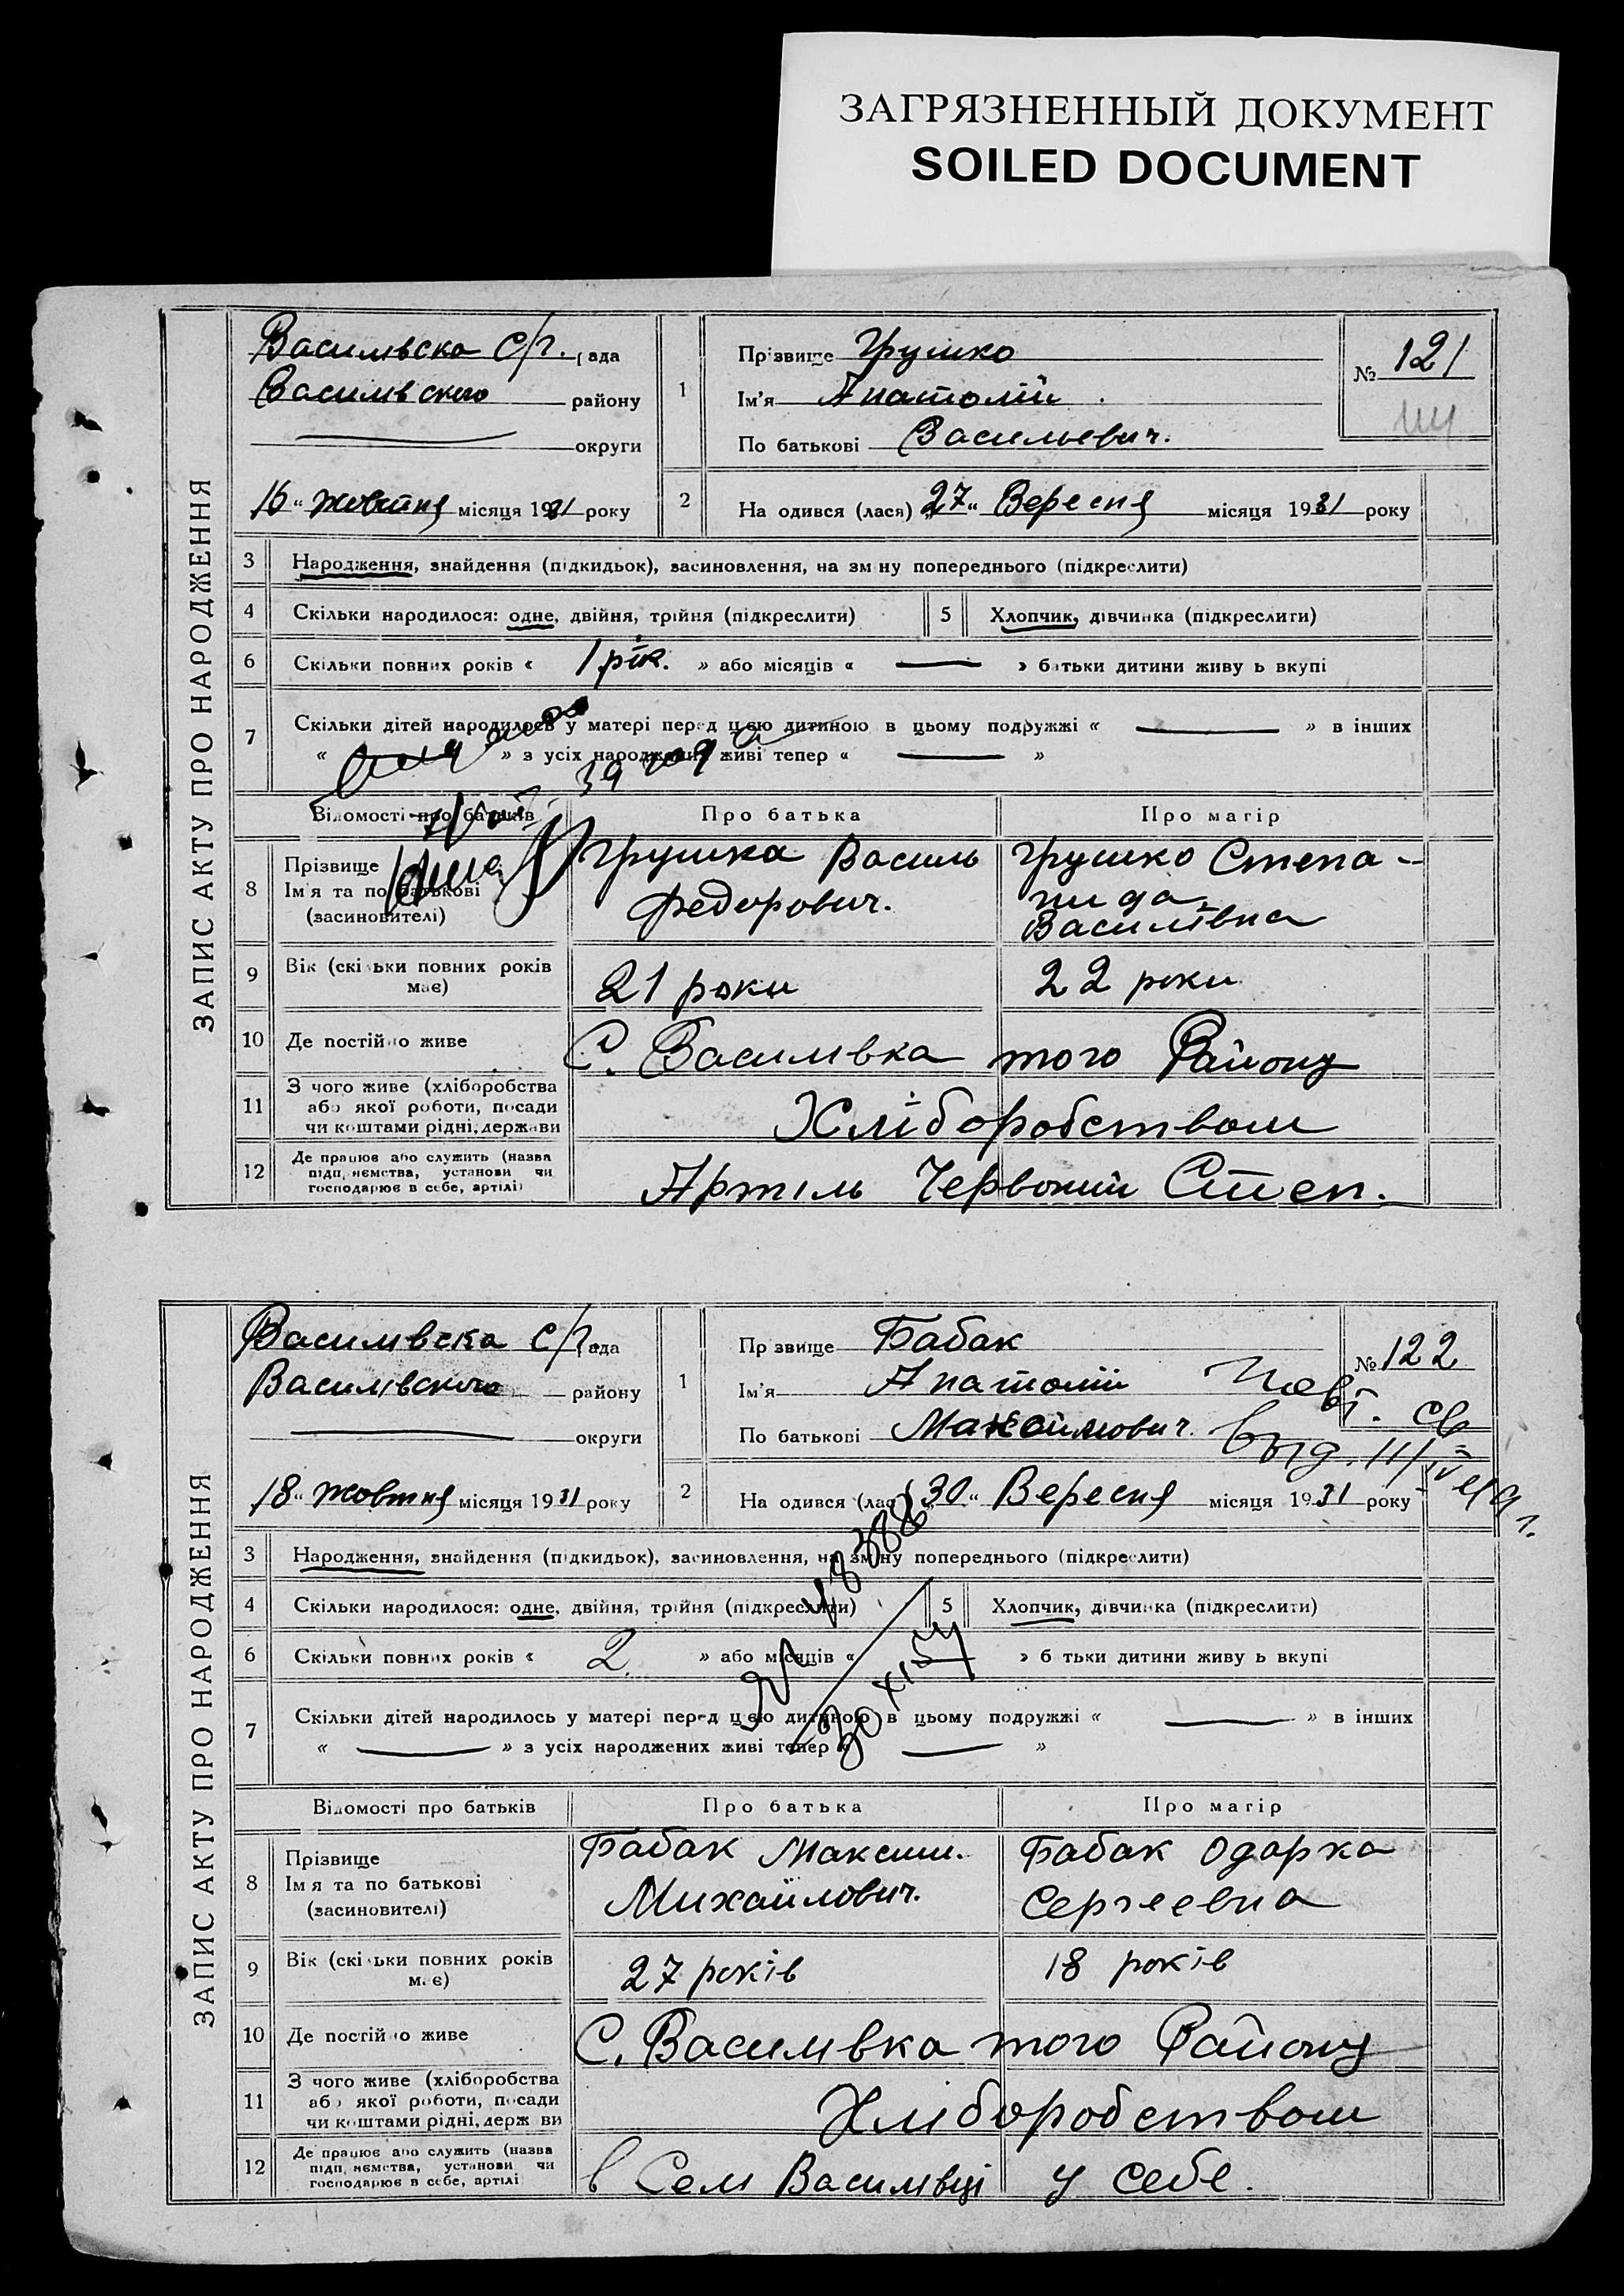 ЗАГРЯЗНЕННЫЙ ДОКУМЕНТ
SOILED DOCUMENT
ЗАПИС АКТУ ПРО НАРОДЖЕННЯ
Василівска С/Г. рада
Василівского району
округи
16 " жовтня місяця 1931 року
1
Прізвище Грушко
Ім'я Анатолій
По батькові Васильевич.
№ 121
2
На одився (лася) "27" Вересня місяця 1931 року
3 Народження, знайдення (підкидьок), засиновлення, на зм ну попереднього (підкреслити)
4 Скільки народилося: одне, двійня, трійня (підкреслити)
5 Хлопчик, дівчинка (підкреслити)
6 Скільки повних років « 1 рік. » або місяців « — » батьки дитини живу ь вкупі
7 Скільки дітей народилось у матері перед цєю дитиною в цьому подружжі « — » в інших
« » з усіх народжених живі тепер « — »
39 года
Відомості про батьків Про батька Про матір
8 Прізвище
Ім'я та по батькові
(засиновителі)
Грушка Василь
Федорович.
Грушко Степа-
нида
Василівна
9 Вік (скільки повних років
має)
21 роки 22 роки
10 Де постійно живе С. Василівка того Району
11 З чого живе (хліборобства
або якої роботи, посади
чи коштами рідні, держави
Хліборобством
12 Де працює або служить (назва
підп иємства, установи чи
господарює в себе, артілі)
Артіль Червоний Степ.
ЗАПИС АКТУ ПРО НАРОДЖЕННЯ
Василівска С/Г. рада
Василівского району
округи
18 " жовтня місяця 1931 року
1
Пр звище Бабак
Ім'я Анатолій
По батькові Максимович.
№ 122
Повт. св
выд. 11/IV 49 г.
2
На одився (лася) "30" Вересня місяця 1931 року
3 Народження, знайдення (підкидьок), засиновлення, на зміну попереднього (підкреслити)
4 Скільки народилося: одне, двійня, трійня (підкреслити)
5 Хлопчик, дівчинка (підкреслити)
6 Скільки повних років « 2. » або місяців « — » б тьки дитини живу ь вкупі
7 Скільки дітей народилось у матері перед цєю дитиною в цьому подружжі « — » в інших
« — » з усіх народжених живі тепер « — »
Відомості про батьків Про батька Про матір
8 Прізвище
Ім я та по батькові
(засиновителі)
Бабак Максим.
Михайлович.
Бабак Одарка
Сергеевна
9 Вік (скільки повних років
має)
27 років 18 років
10 Де постійно живе С. Василівка того Району
11 З чого живе (хліборобства
або якої роботи, посади
чи коштами рідні, держ ви
Хліборобством
12 Де працює або служить (назва
підп иємства, установи чи
господарює в себе, артілі
в Селі Василівці у себе.